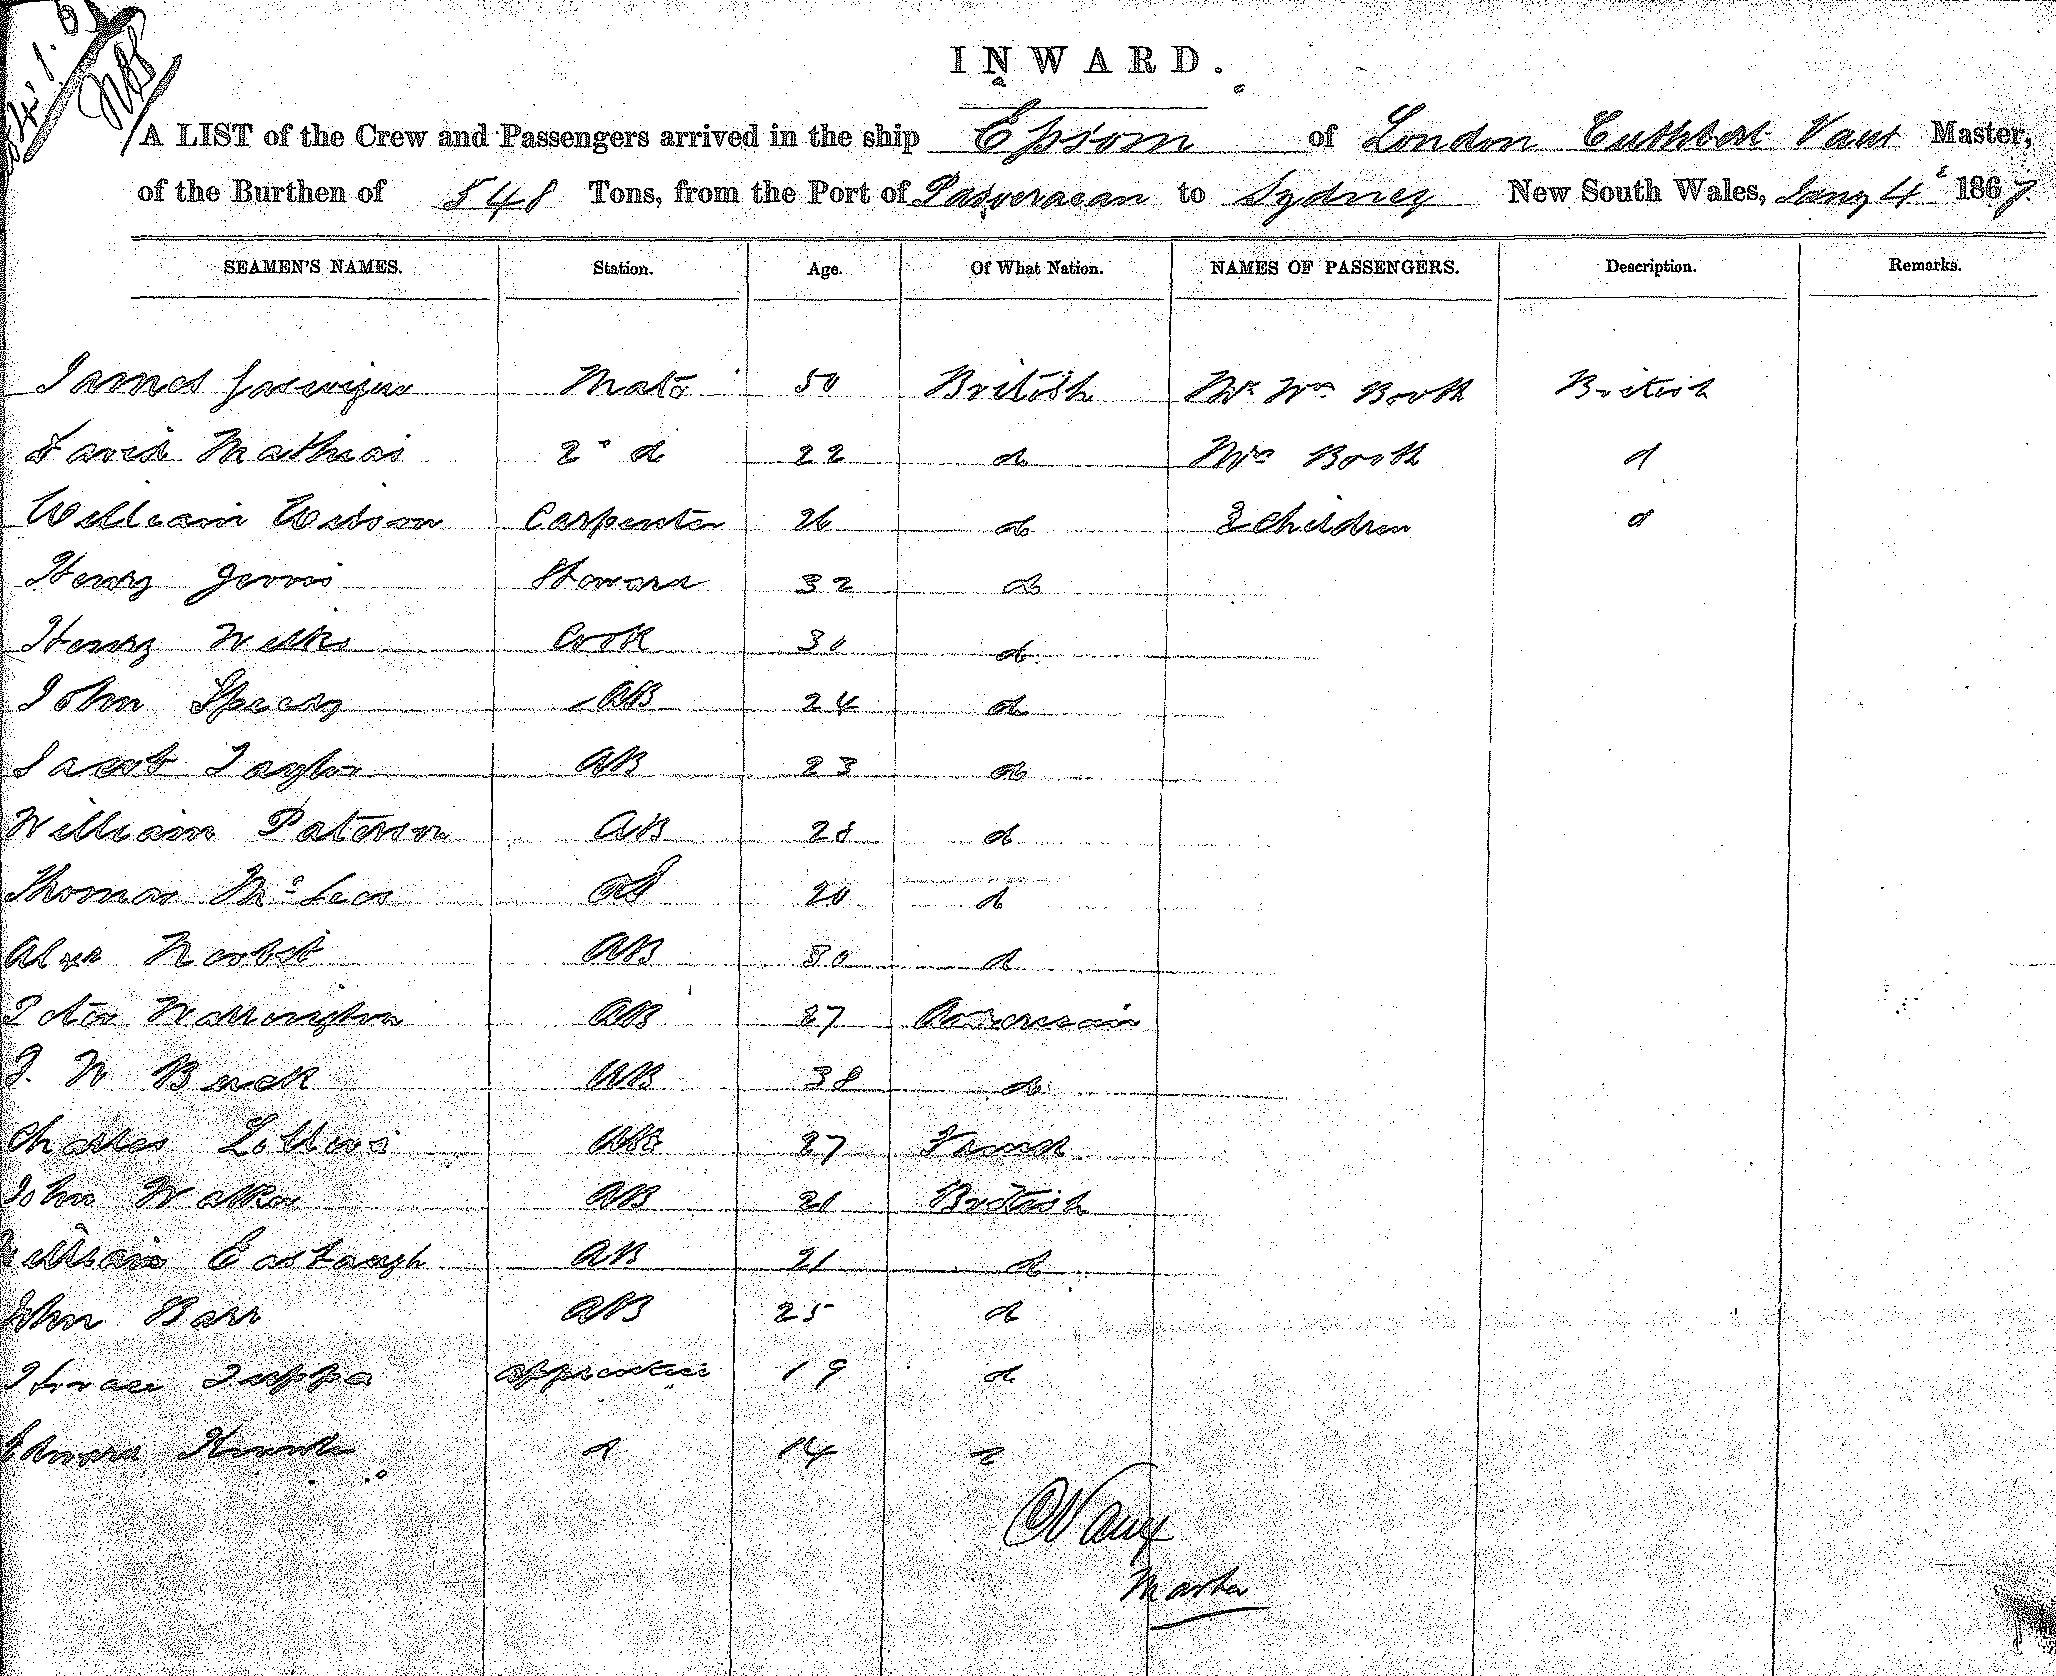 INWARD.
A LIST of the Crew and Passengers arrived in the ship Epsom of London Cuthbert Vaux Master,
of the Burthen of 548 Tons, from the Port of to Sydney New South Wales, Jany 4 1867.
SEAMEN'S NAMES. Station. Age. Of What Nation. NAMES OF PASSENGERS. Description. Remarks.
James Mate 50 British Mr Wm Booth British
David Mathias 2d d 22 d Mrs Booth d
William Carpenter 26 d Children d
Henry Jervis Steward 32 d
Henry Wilks Cook 30 d
John AB 24 d
Jacob Taylor AB 23 d
William Paterson AB 28 d
Thomas 20 d
Alexr AB 30 d
Peter Warrington AB 27 American
J. W AB 38 d
Charles AB 27 French
John Walker AB 21 British
William Eastaugh AB 21 d
John Barr AB 25 d
Horace apprentice 19 d
Edward d 14 d
C Vaux
Master